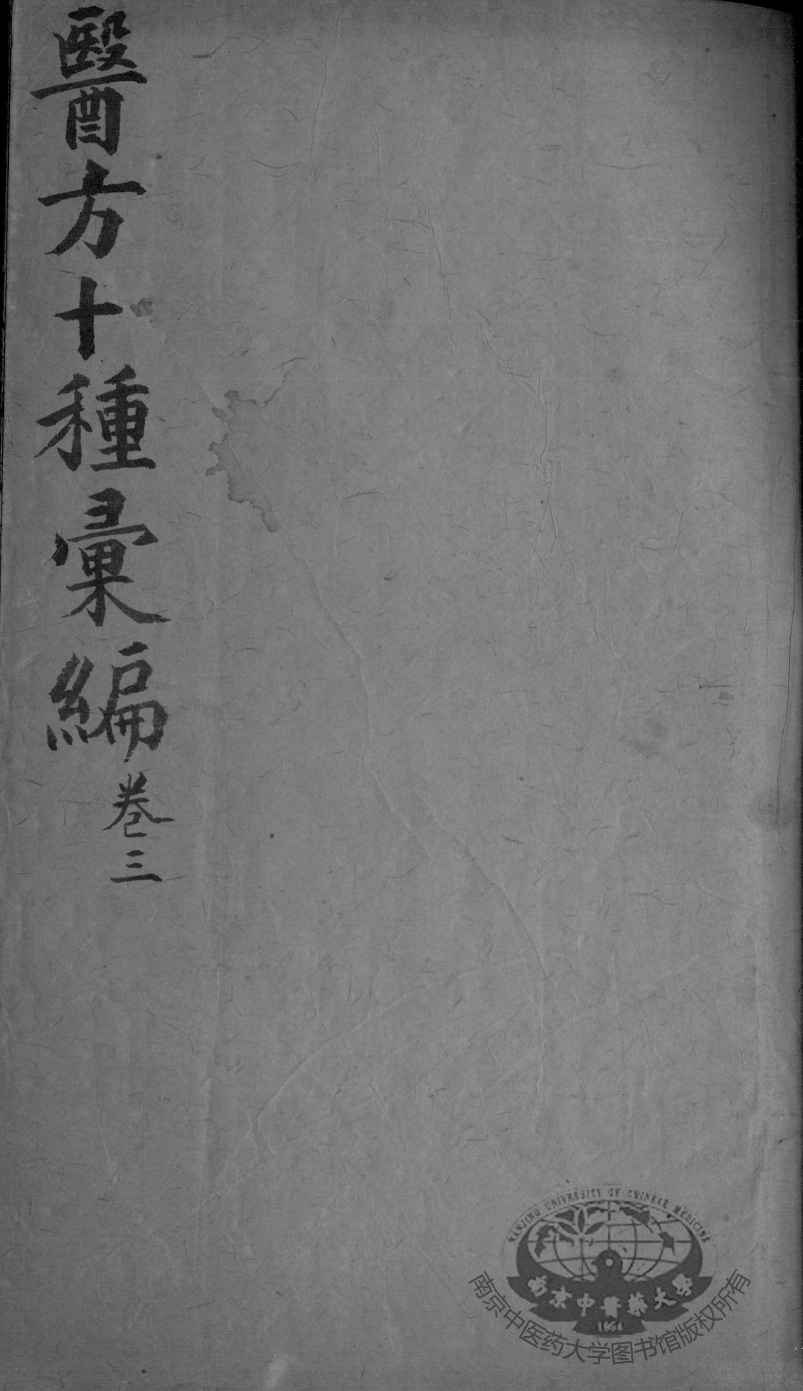 醫方十種彙編
卷三
NANJING UNIVERSITY OF CHINESE MEDICINE
南京中醫藥大學
1954
南京中医药大学图书馆版权所有